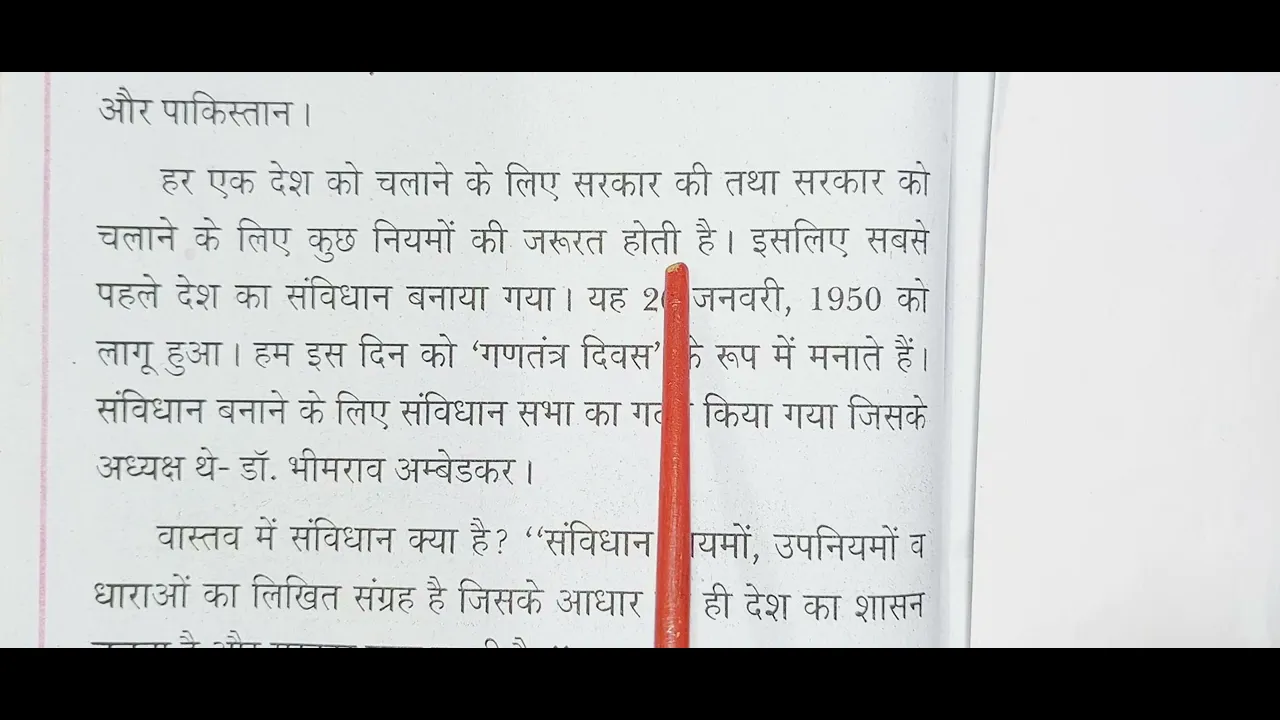 और पाकिस्तान ।
हर एक देश को चलाने के लिए सरकार की तथा सरकार को
चलाने के लिए कुछ नियमों की जरूरत होती है । इसलिए सबसे
पहले देश का संविधान बनाया गया । यह 26 जनवरी, 1950 को
लागू हुआ । हम इस दिन को ‘गणतंत्र दिवस’ के रूप में मनाते हैं ।
संविधान बनाने के लिए संविधान सभा का किया गया जिसके
अध्यक्ष थे- डॉ. भीमराव अम्बेडकर ।
वास्तव में संविधान क्या है? “संविधान उपनियमों व
धाराओं का लिखित संग्रह है जिसके आधार ही देश का शासन